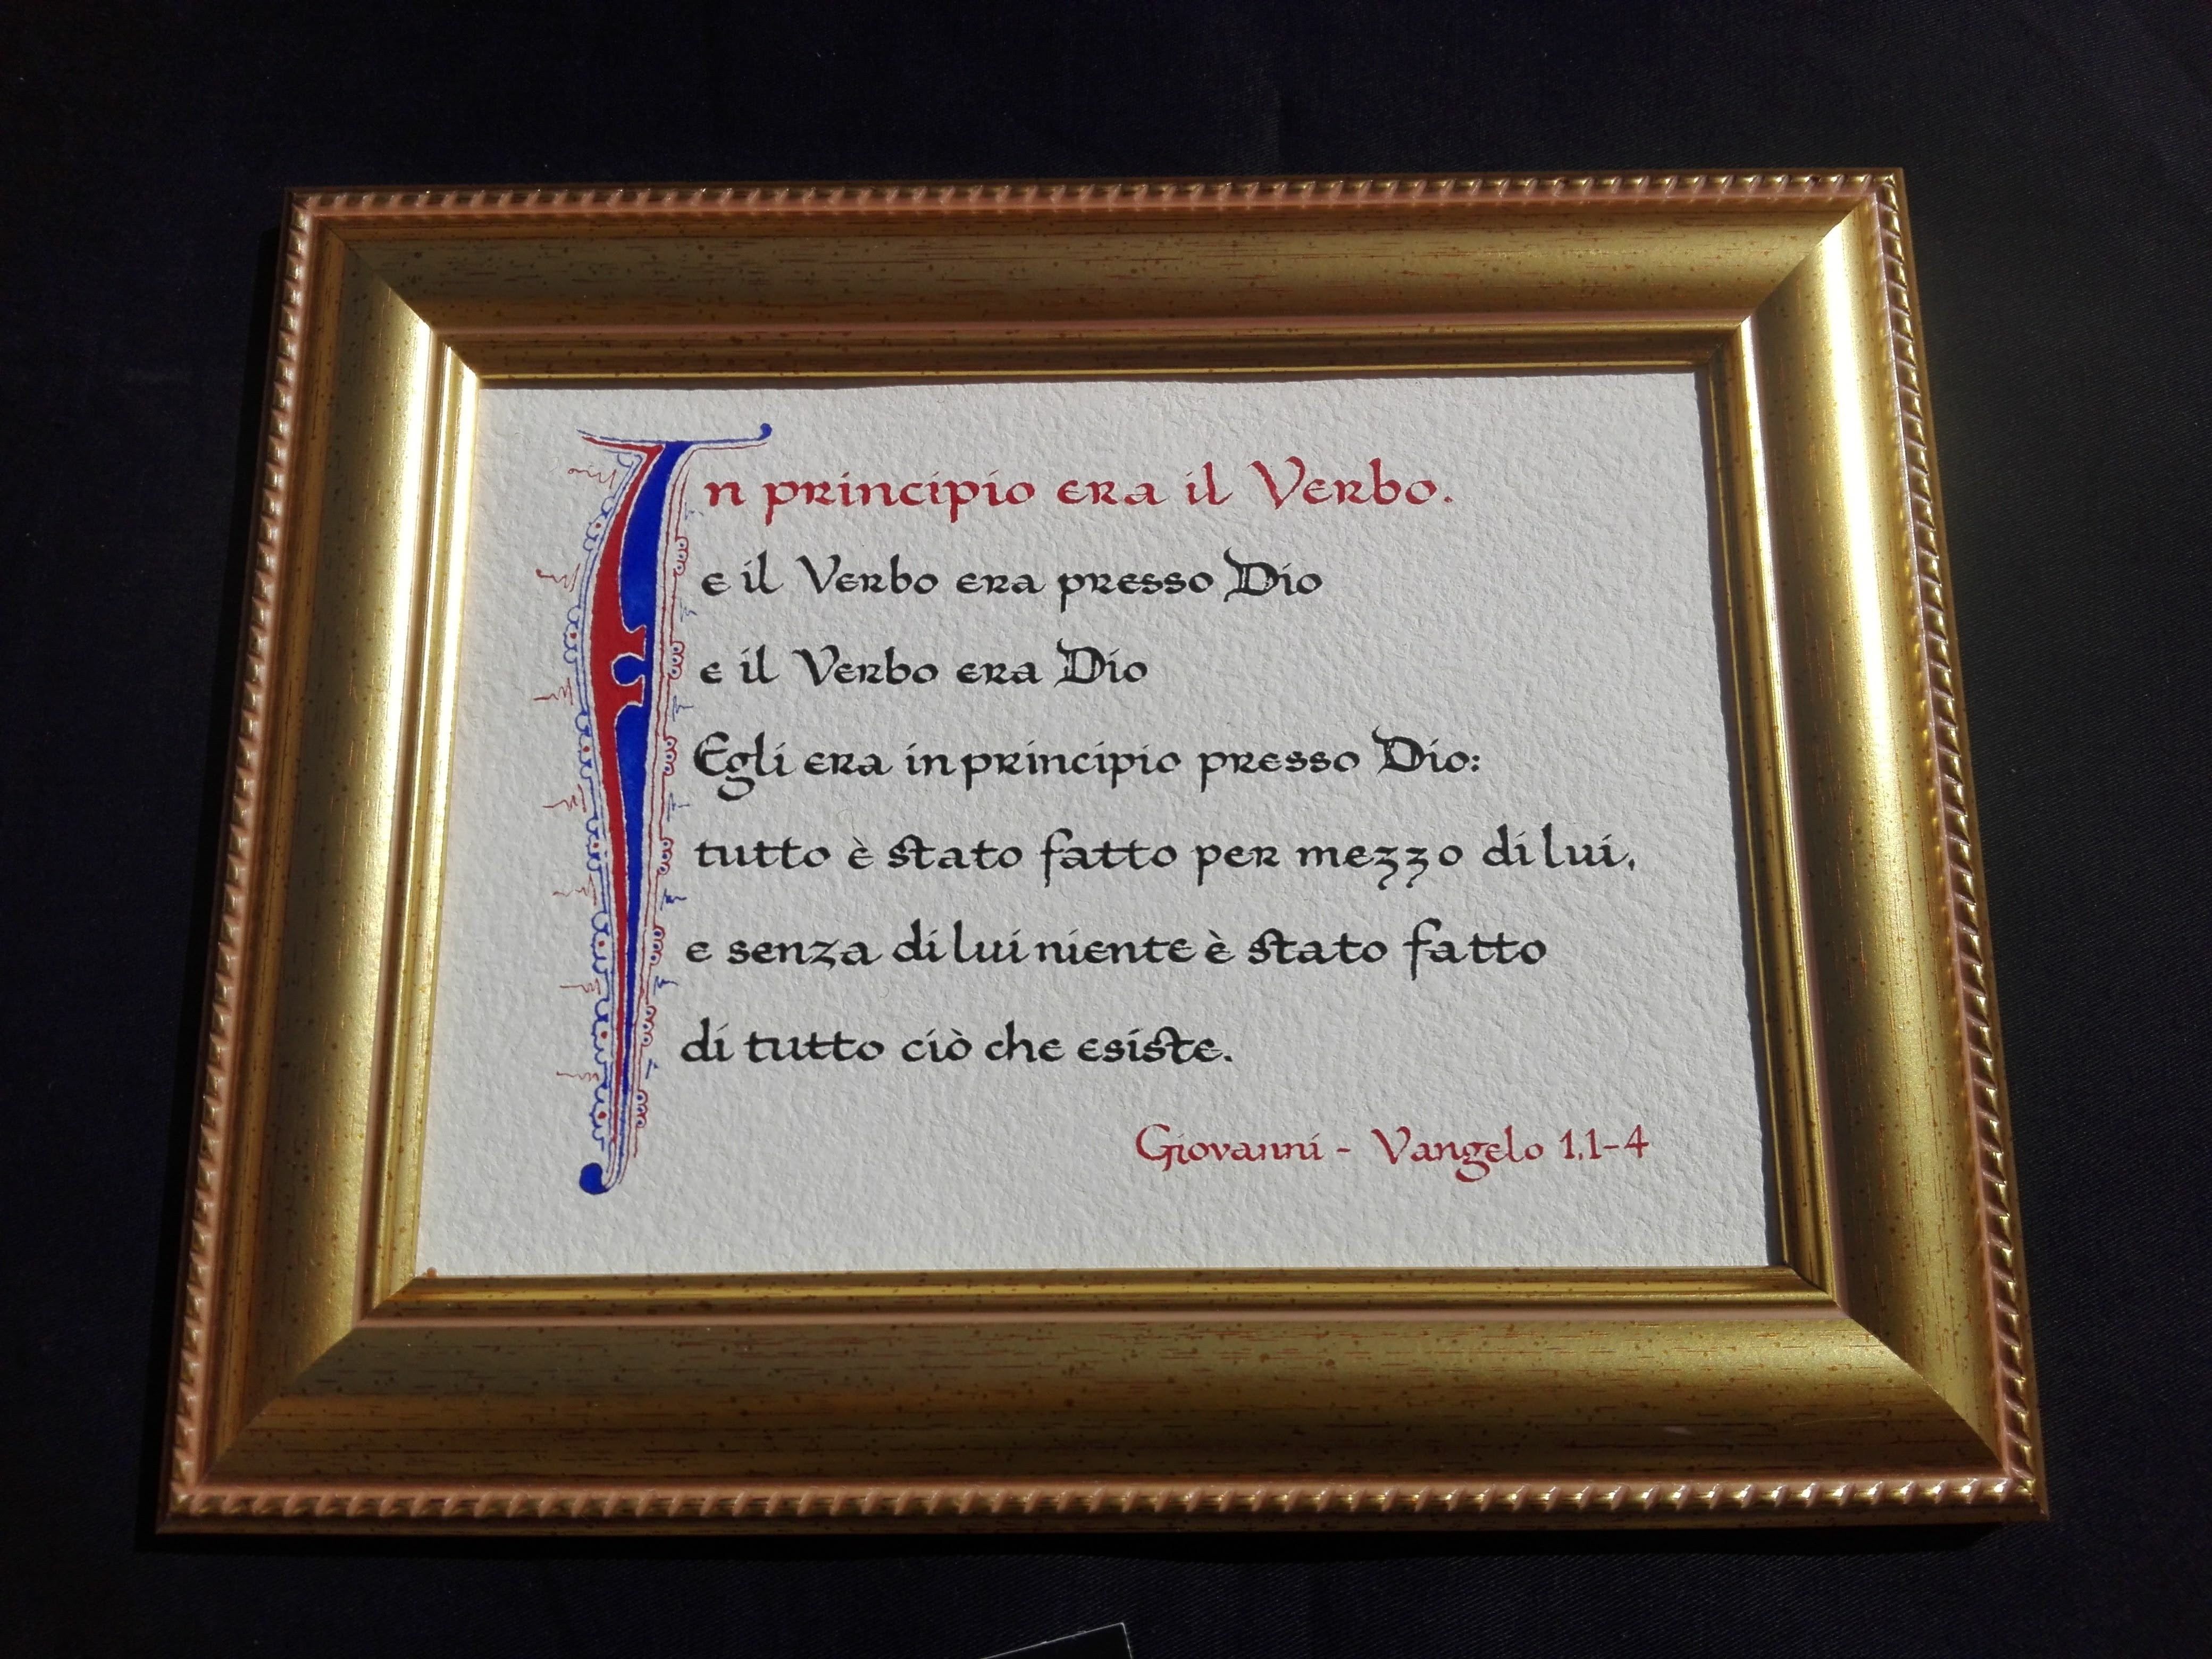 In principio era il Verbo.
e il Verbo era presso Dio
e il Verbo era Dio
Egli era in principio presso Dio:
tutto è stato fatto per mezzo di lui,
e senza di lui niente è stato fatto
di tutto ciò che esiste.
Giovanni - Vangelo 1,1-4